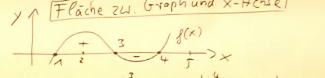 Fläche zw. Graph und x-Achse
y
f(x)
+
3
-
1
2
4
5
x
3
4